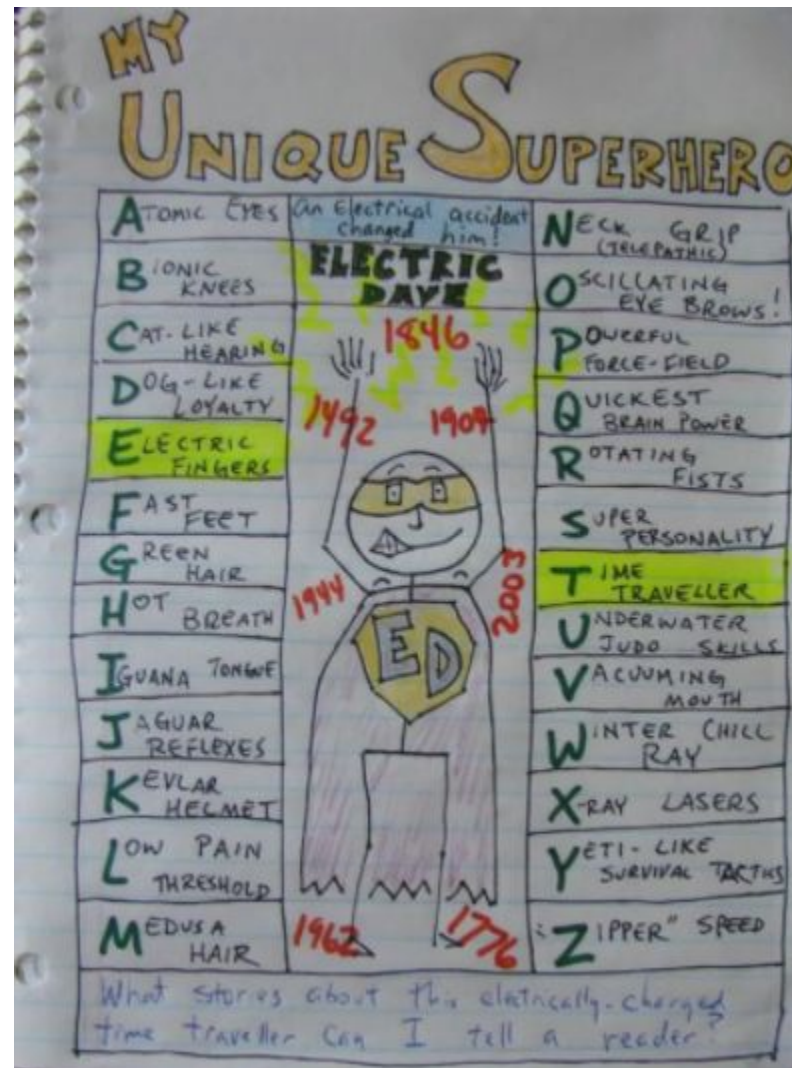 MY
UNIQUE SUPERHERO
ATOMIC EYES
BIONIC
KNEES
CAT-LIKE
HEARING
DOG-LIKE
LOYALTY
ELECTRIC
FINGERS
FAST
FEET
GREEN
HAIR
HOT BREATH
IGUANA TONGUE
JAGUAR
REFLEXES
KEVLAR
HELMET
LOW PAIN
THRESHOLD
MEDUSA
HAIR
An Electrical accident
changed him!
ELECTRIC
DAVE
1846
1492 1904
1944 2003
ED
1962 1776
NECK GRIP
(TELEPATHIC)
OSCILLATING
EYE BROWS!
POWERFUL
FORCE-FIELD
QUICKEST
BRAIN POWER
ROTATING
FISTS
SUPER
PERSONALITY
TIME
TRAVELLER
UNDERWATER
JUDO SKILLS
VACUUMING
MOUTH
WINTER CHILL
RAY
X-RAY LASERS
YETI-LIKE
SURVIVAL
"ZIPPER" SPEED
What stories about this electrically-charged
time traveller can I tell a reader?